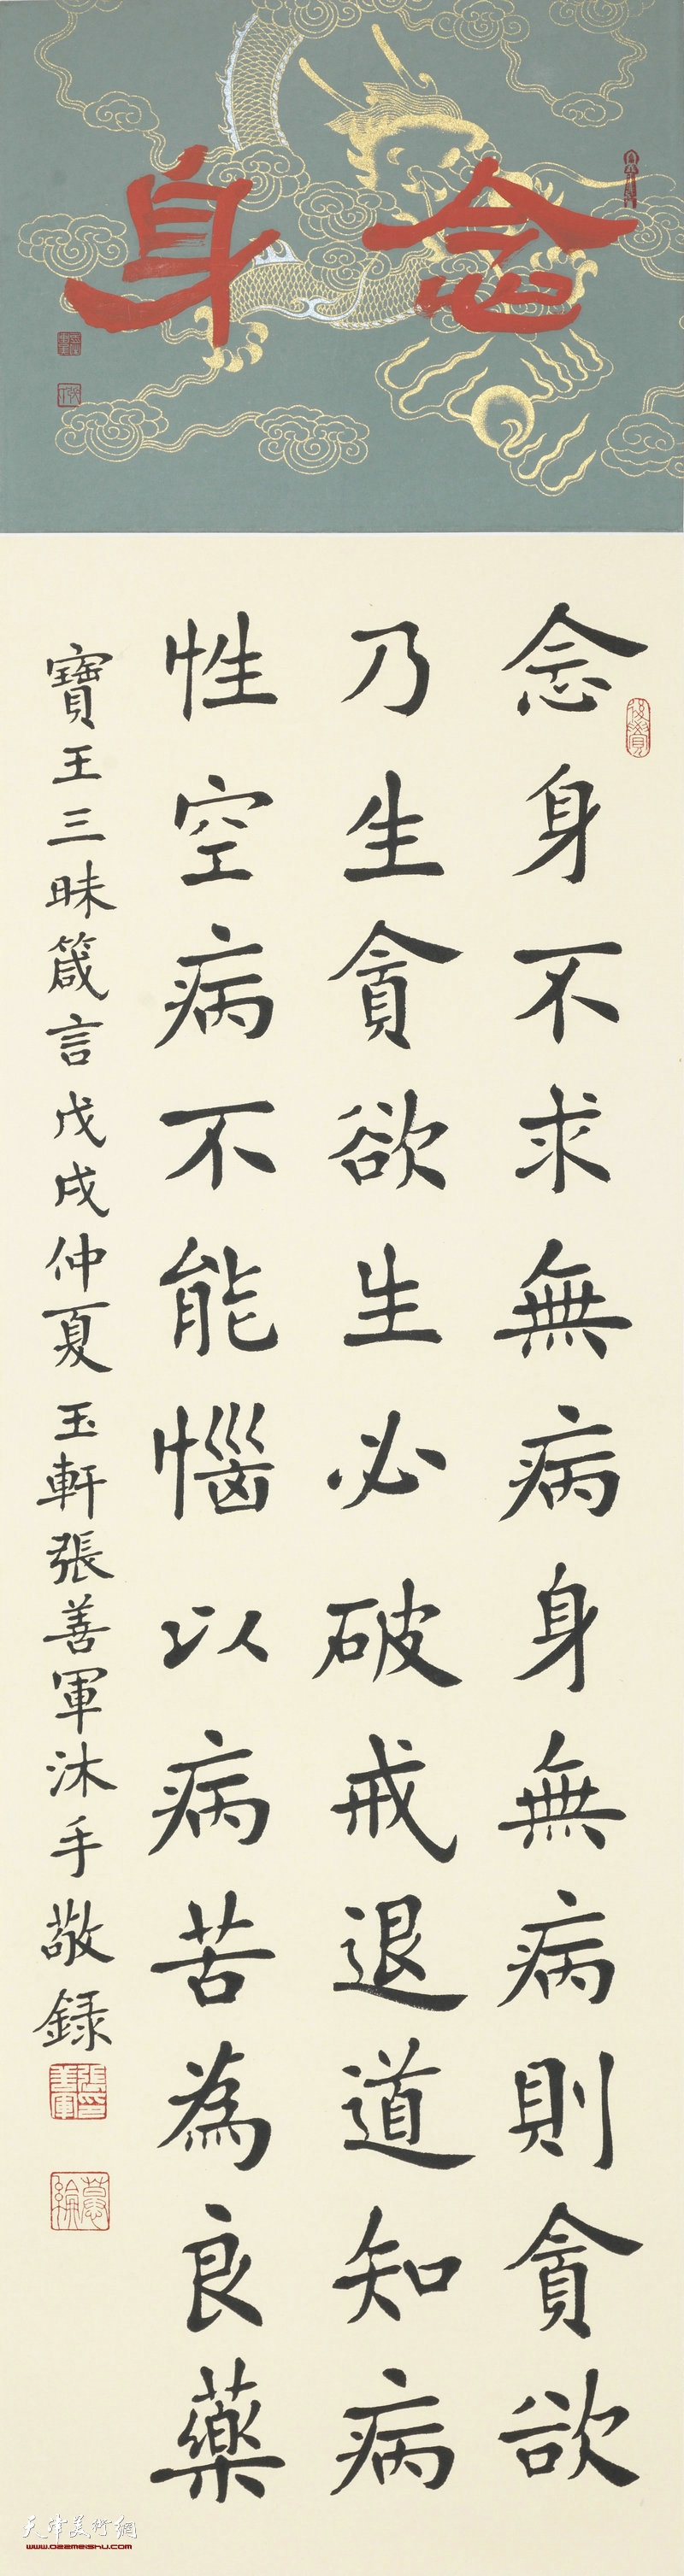 念身
念身不求無病身無病則貪欲
乃生貪欲生必破戒退道知病
性空病不能惱以病苦為良藥
寶王三昧箴言戊戌仲夏玉軒張善軍沐手敬録
張善軍印
天津美術網
www.022meishu.com